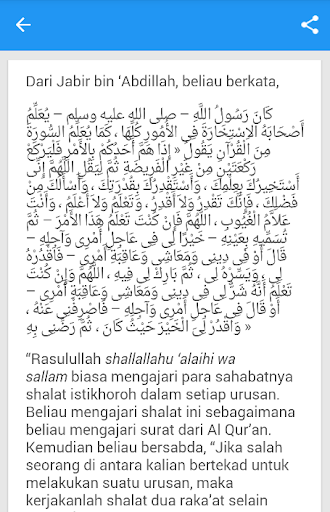 Dari Jabir bin ‘Abdillah, beliau berkata,
كَانَ رَسُولُ اللَّهِ – صلى الله عليه وسلم – يُعَلِّمُ
أَصْحَابَهُ الاِسْتِخَارَةَ فِى الأُمُورِ كُلِّهَا ، كَمَا يُعَلِّمُ السُّورَةَ
مِنَ الْقُرْآنِ يَقُولُ « إِذَا هَمَّ أَحَدُكُمْ بِالأَمْرِ فَلْيَرْكَعْ
رَكْعَتَيْنِ مِنْ غَيْرِ الْفَرِيضَةِ ثُمَّ لِيَقُلِ اللَّهُمَّ إِنِّى
أَسْتَخِيرُكَ بِعِلْمِكَ ، وَأَسْتَقْدِرُكَ بِقُدْرَتِكَ ، وَأَسْأَلُكَ مِنْ
فَضْلِكَ ، فَإِنَّكَ تَقْدِرُ وَلاَ أَقْدِرُ ، وَتَعْلَمُ وَلاَ أَعْلَمُ ، وَأَنْتَ
عَلاَّمُ الْغُيُوبِ ، اللَّهُمَّ فَإِنْ كُنْتَ تَعْلَمُ هَذَا الأَمْرَ – ثُمَّ
تُسَمِّيهِ بِعَيْنِهِ – خَيْرًا لِى فِى عَاجِلِ أَمْرِى وَآجِلِهِ –
قَالَ أَوْ فِى دِينِى وَمَعَاشِى وَعَاقِبَةِ أَمْرِى – فَاقْدُرْهُ
لِى ، وَيَسِّرْهُ لِى ، ثُمَّ بَارِكْ لِى فِيهِ ، اللَّهُمَّ وَإِنْ كُنْتَ
تَعْلَمُ أَنَّهُ شَرٌّ لِى فِى دِينِى وَمَعَاشِى وَعَاقِبَةِ أَمْرِى –
أَوْ قَالَ فِى عَاجِلِ أَمْرِى وَآجِلِهِ – فَاصْرِفْنِى عَنْهُ ،
وَاقْدُرْ لِىَ الْخَيْرَ حَيْثُ كَانَ ، ثُمَّ رَضِّنِى بِهِ »
“Rasulullah shallallahu ‘alaihi wa
sallam biasa mengajari para sahabatnya
shalat istikhoroh dalam setiap urusan.
Beliau mengajari shalat ini sebagaimana
beliau mengajari surat dari Al Qur’an.
Kemudian beliau bersabda, “Jika salah
seorang di antara kalian bertekad untuk
melakukan suatu urusan, maka
kerjakanlah shalat dua raka’at selain